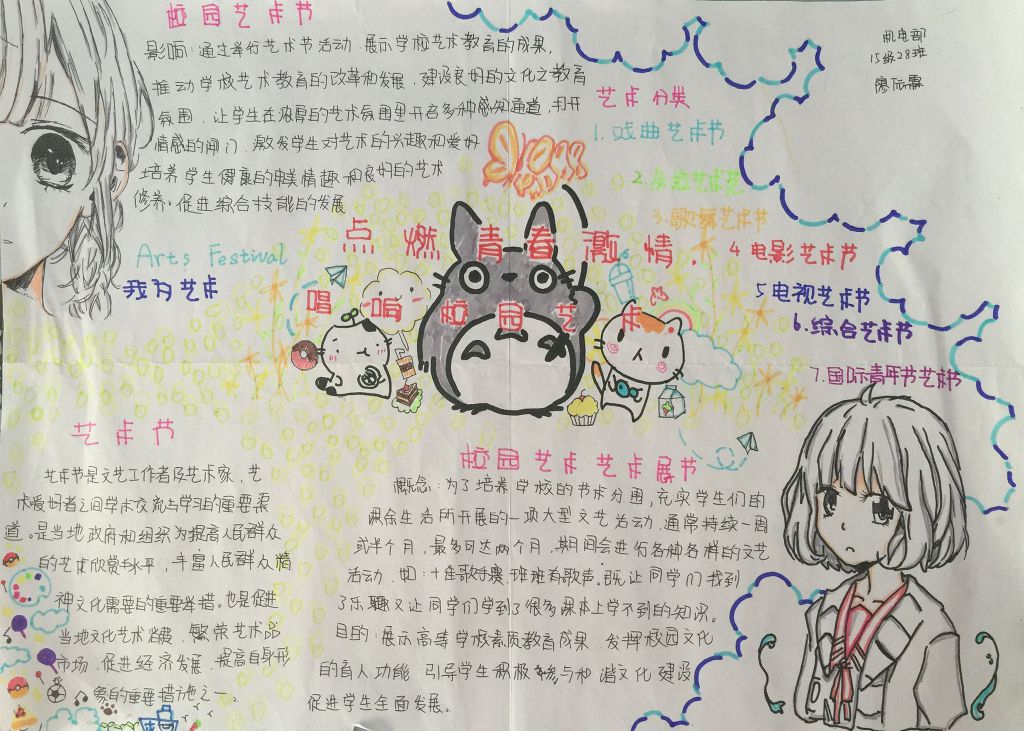 校园艺术节
影响:通过举行艺术节活动 展示学校艺术教育的成果,
推动学校艺术教育的改革和发展,建设良好的文化之教育
氛围,让学生在浓厚的艺术氛围里开启多种感知通道,打开
情感的闸门,激发学生对艺术的兴趣和爱好
培养学生健康的审美情趣和良好的艺术
修养。促进综合技能的发展
机电部
15级28班
艺术分类
1.戏曲艺术节
2.
3.歌舞艺术节
4 电影艺术节
5 电视艺术节
6.综合艺术节
7.国际青年节艺术节
点燃青春激情.
唱响校园艺术
Arts Festival
我为艺术
艺术节
艺术节是文艺工作者及艺术家、艺
术爱好者之间学术交流与学习的重要渠
道。是当地政府和组织为提高人民群众
的艺术欣赏水平,丰富人民群众精
神文化需要的重要举措。也是促进
当地文化艺术消费、繁荣艺术品
市场、促进经济发展、提高自身形
象的重要措施之一。
校园艺术艺术展节
概念:为了培养学校的节术分围,充实学生们的
课余生活所开展的一项大型文艺活动,通常持续一周
或半个月,最多可达两个月,期间会进行各种各样的文艺
活动,如:十佳歌手赛,班班有歌声。既让同学们找到
了乐趣又让同学们学到了很多课本上学不到的知识。
目的:展示高等学校素质教育成果,发挥校园文化
的育人功能,引导学生积极参与和谐文化建设
促进学生全面发展。